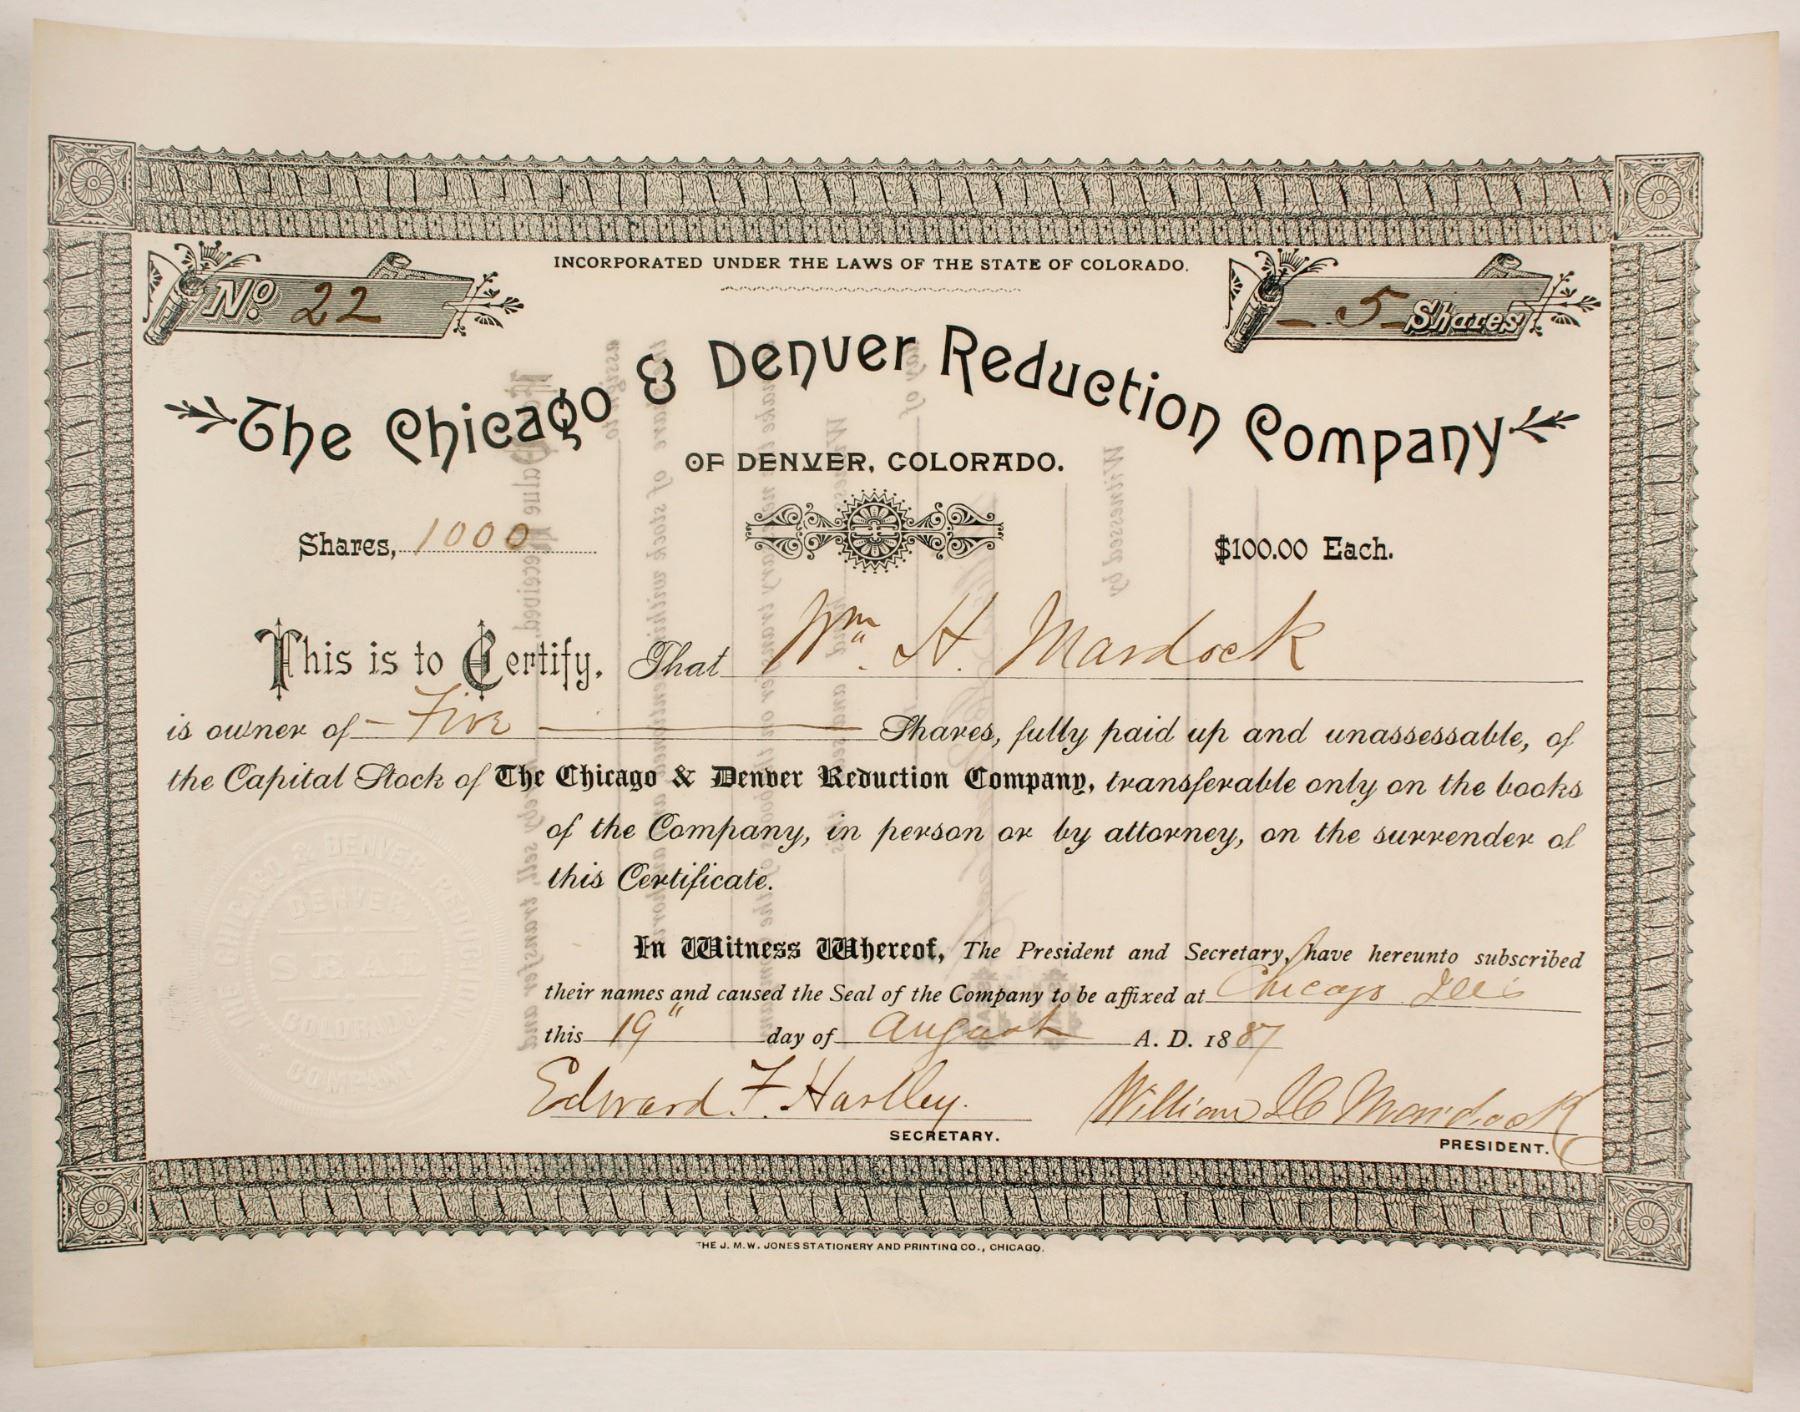 INCORPORATED UNDER THE LAWS OF THE STATE OF COLORADO.
No. 22
5 Shares
The Chicago & Denver Reduction Company
OF DENVER, COLORADO.
Shares, 1000
$100.00 Each.
This is to Certify, That Wm. H. Mardock
is owner of Five Shares, fully paid up and unassessable, of
the Capital Stock of The Chicago & Denver Reduction Company, transferable only on the books
of the Company, in person or by attorney, on the surrender of
this Certificate.
In Witness Whereof, The President and Secretary, have hereunto subscribed
their names and caused the Seal of the Company to be affixed at Chicago Ills
this 19" day of August A. D. 1887
Edward F. Hartley.
SECRETARY.
William H Mardock
PRESIDENT.
THE CHICAGO & DENVER REDUCTION
COMPANY
DENVER,
COLORADO
THE J. M. W. JONES STATIONERY AND PRINTING CO., CHICAGO.